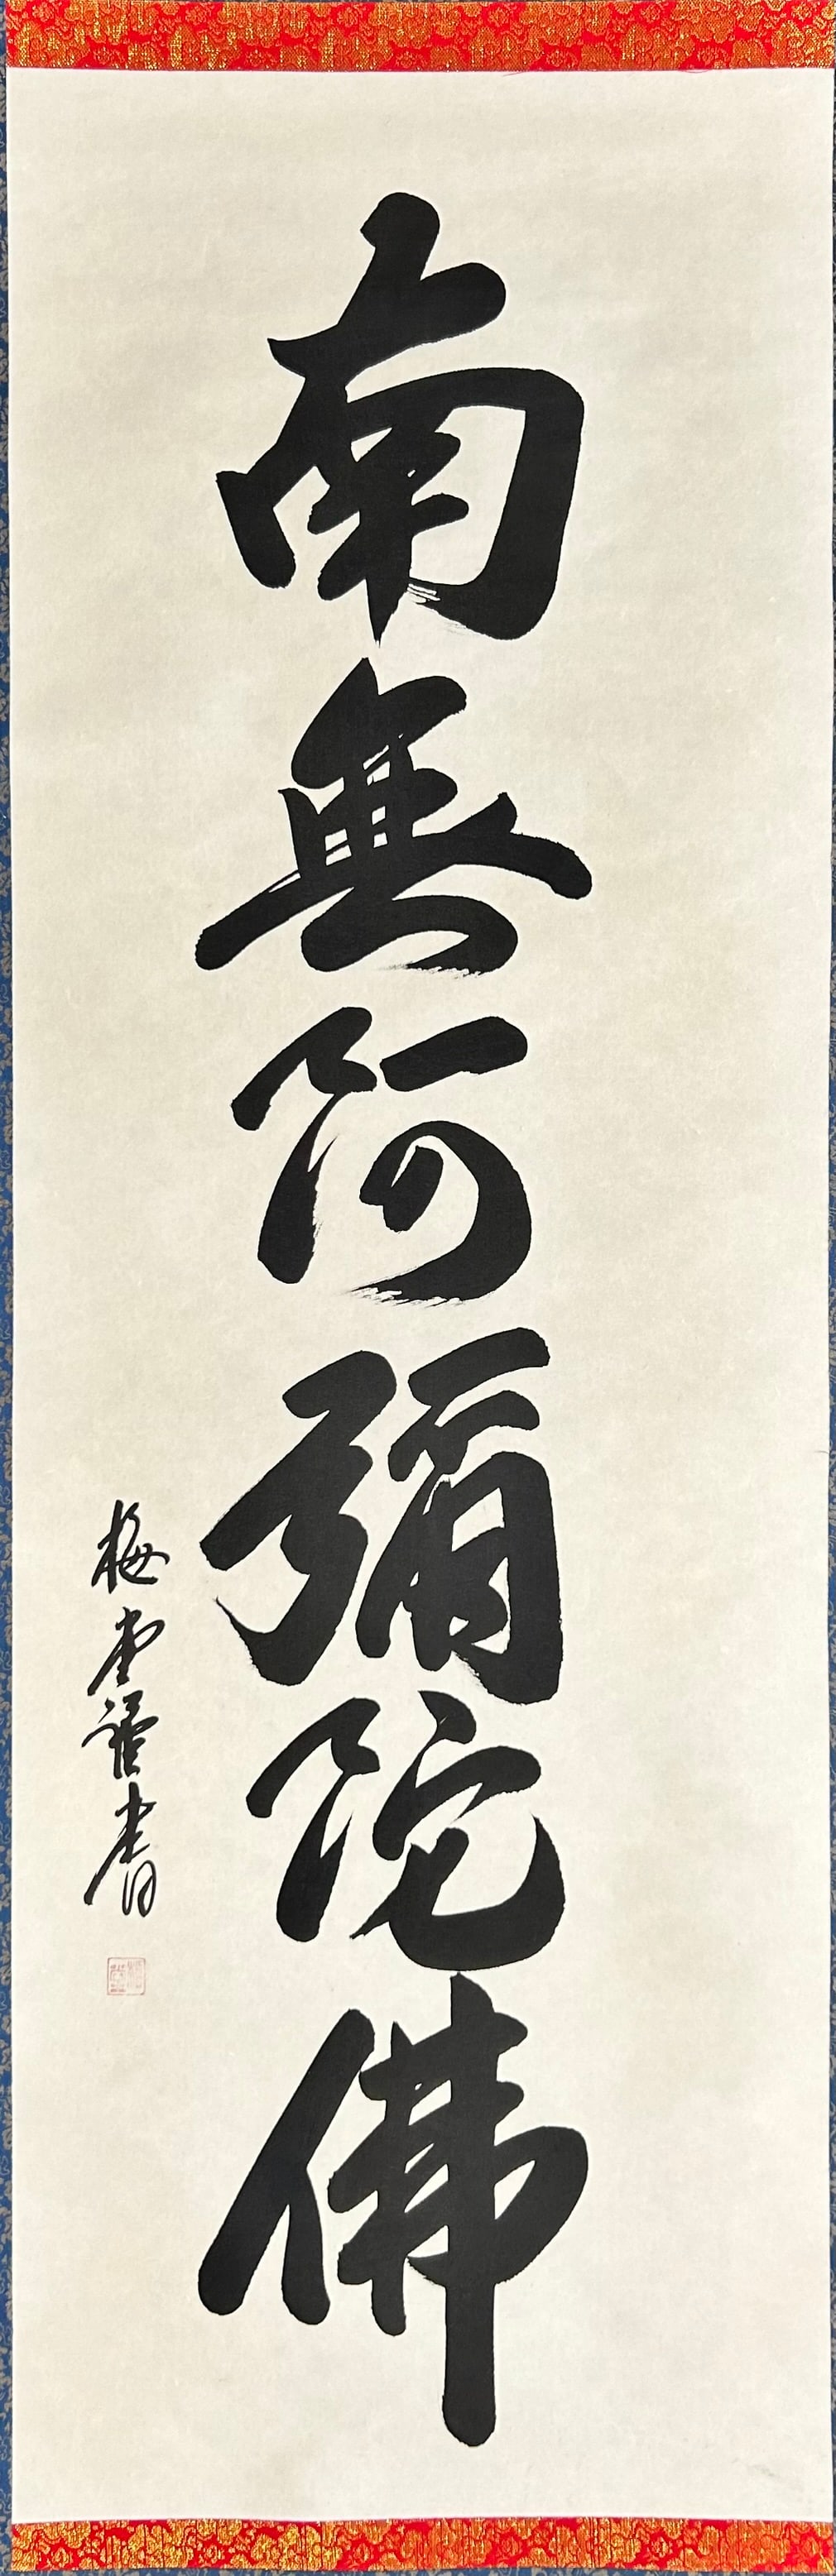 南無阿彌陀佛
梅堂謹書